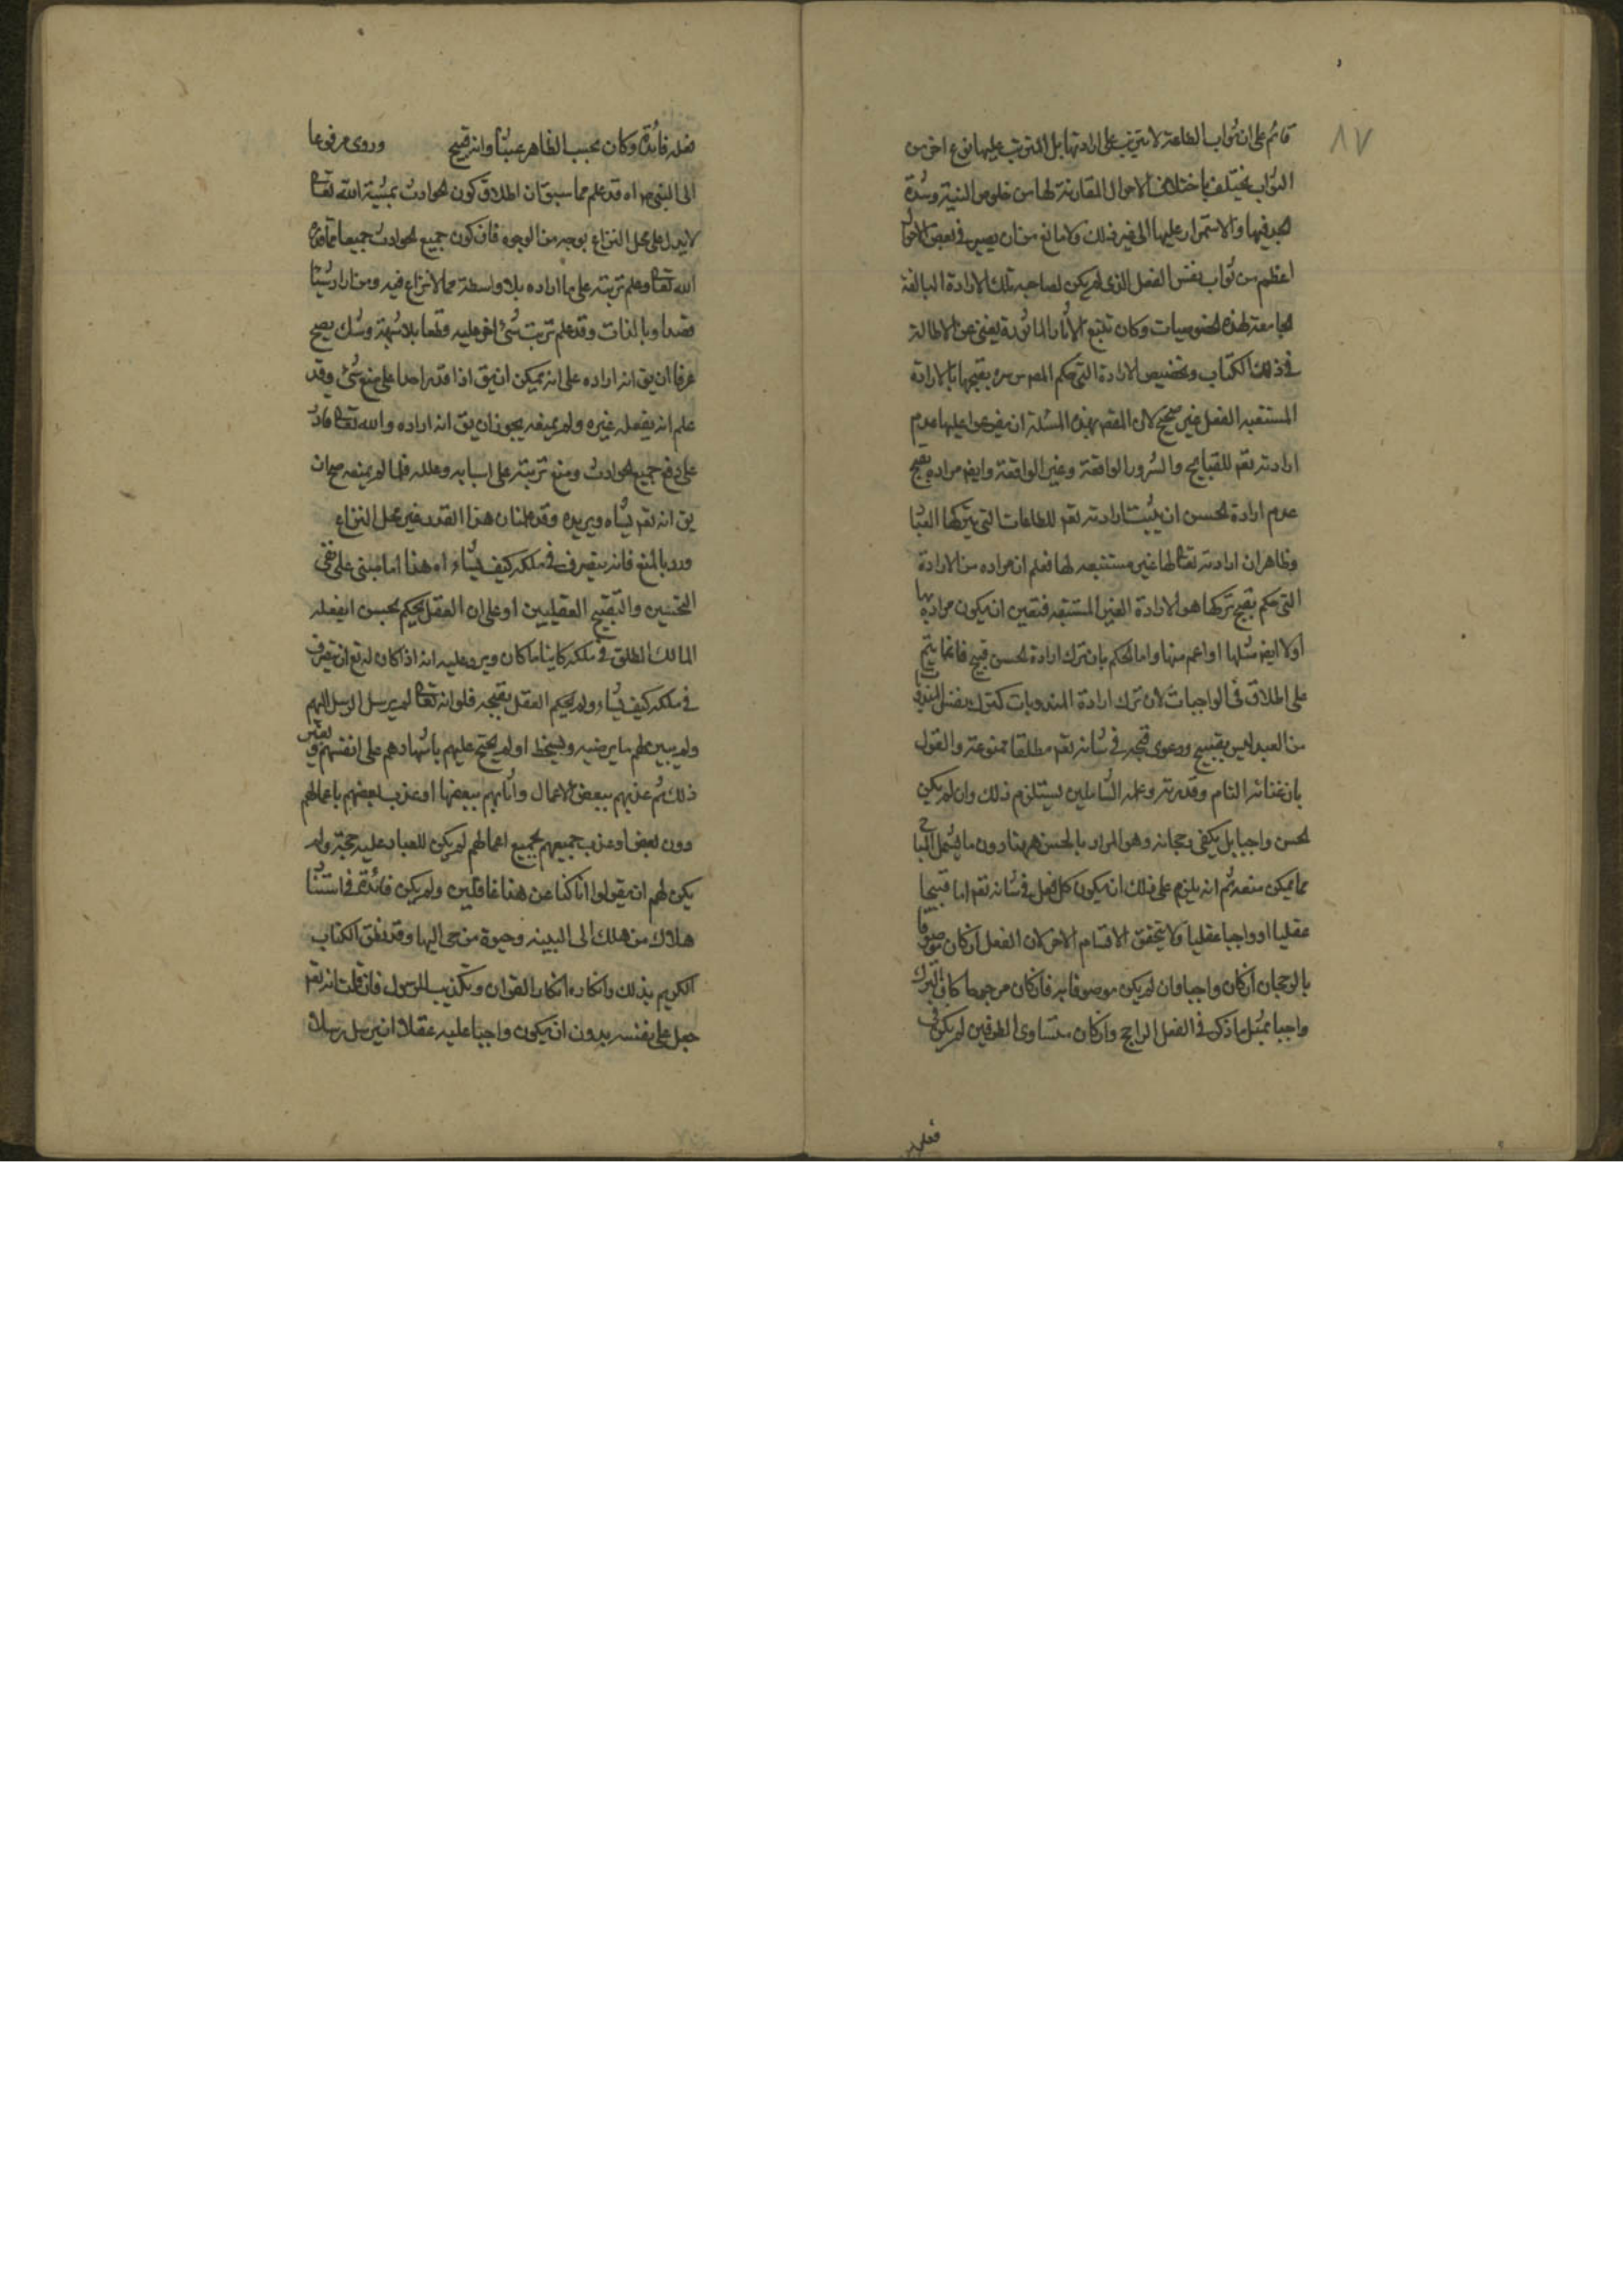 ٨٧
قائم على ان ثواب الطاعة لا يترتب على ارادتها بل المترتب عليها نوع اخر من
الثواب يختلف باختلاف الاحوال المقارنة لها من خلوص النية وشدة
الجد فيها والاستمرار عليها الى غير ذلك ولا مانع من ان يصير في بعض الاحوال
اعظم من ثواب نفس الفعل الذي لم يكن لصاحبه تلك الارادة البالغة
الجامعة لهذه الخصوصيات وكان تتبع الآثار الماثورة يغني عن الاطالة
في ذلك الكتاب وتخصيص الارادة التي حكم المص س ره بقبحها بالارادة
المستتبعة الفعل غير صحيح لان المقصود بهذه المسئلة ان يفرعوا عليها عدم
ارادته تعم للقبايح والشرور الواقعة وغير الواقعة وايض مراده بقبح
عدم ارادة الحسن ان يثبت ارادته تعم للطاعات التي يتركها العباد
وظاهر ان ارادته تعالى لها غير مستتبعه لها فعلم ان مراده من الارادة
التي حكم بقبح تركها هو الارادة الغير المستتبعه فتعين ان يكون مراده بها
اولا ايض مثلها او اعم منها واما الحكم بان ترك ارادة الحسن قبيح فانما يتم
على اطلاق في الواجبات لان ترك ارادة المندوبات كترك نفس المندوب
من العبد ليس بقبيح ودعوى قبحه في شانه تعم مطلقا ممنوعة والقول
بان غنائه التام وقدرته وعلمه الشاملين يستلزم ذلك وان لم يكن
الحسن واجبا بل يكفي رجحانه وهو المراد بالحسن ههنا دون ما يشمل المباح
مما يمكن منعه ثم انه يلزم على ذلك ان يكون كل فعل في شانه تعم اما قبيحا
عقليا او واجبا عقليا ولا يتحقق الاقسام الاخر لان الفعل ان كان موصوفا
بالرجحان ان كان واجبا وان لم يكن موصوفا به فان كان مرجوحا كان الترك
واجبا بمثل ما ذكر في الفعل الراجح وان كان متساوى الطرفين لم يكن في
فعله
فعله فائدة وكان بحسب الظاهر عبثا وانه قبيح وروى مرفوعا
الى النبي ص اه قد علم مما سبق ان اطلاق كون الحوادث بمشية الله تعالى
لا يدل على محل النزاع بوجه من الوجوه فان كون جميع الحوادث جميعا مما
الله تعالى وعلم ترتبه على ما اراده بلا واسطة مما لا نزاع فيه ومن اراد شيئا
قصدا وبالذات وقد علم ترتب شئ اخر عليه قطعا بلا شبهة وشك يصح
عرفا ان يق انه اراده على انه يمكن ان يق اذا قدر احد على منع شئ وقد
علم انه يفعله غيره ولم يمنعه يجوز ان يق انه اراده والله تعالى قادر
على دفع جميع الحوادث ومنع ترتبه على اسبابه وعلله فلما لم يمنعه صح ان
يق انه تعم يشاه ويريده وقد علمنا ان هذا القدر غير محل النزاع
ورد بالمنع فانه يتصرف في ملكه كيف يشاء اه هذا اما مبنى على نفى
التحسين والتقبيح العقليين او على ان العقل يحكم بحسن ما يفعله
المالك المطلق في ملكه كاينا ما كان ويرد عليه انه اذا كان له تع ان يتصرف
في ملكه كيف يشاء ولم يحكم العقل بقبحه فلو انه تعالى لم يرسل الرسل اليهم
ولم يبين لهم ما يرضيه ويسخط او لم يحتج عليهم باشهادهم على انفسهم وغير
ذلك ثم عذبهم ببعض الاعمال واثابهم ببعضها او عذب بعضهم باعمالهم
دون بعض او عذب جميعهم بجميع اعمالهم لم يكن للعباد عليه حجة ولم
يكن لهم ان يقولوا انا كنا عن هذا غافلين ولم يكن فائدة في استناد
هلاك من هلك الى البينه وحيوة من حى اليها وقد نطق الكتاب
الكريم بذلك وانكاره انكار القران وتكذيب الرسول فان قلت انه تعم
جعل على نفسه بدون ان يكون واجبا عليه عقلا ان يرسل رسلا